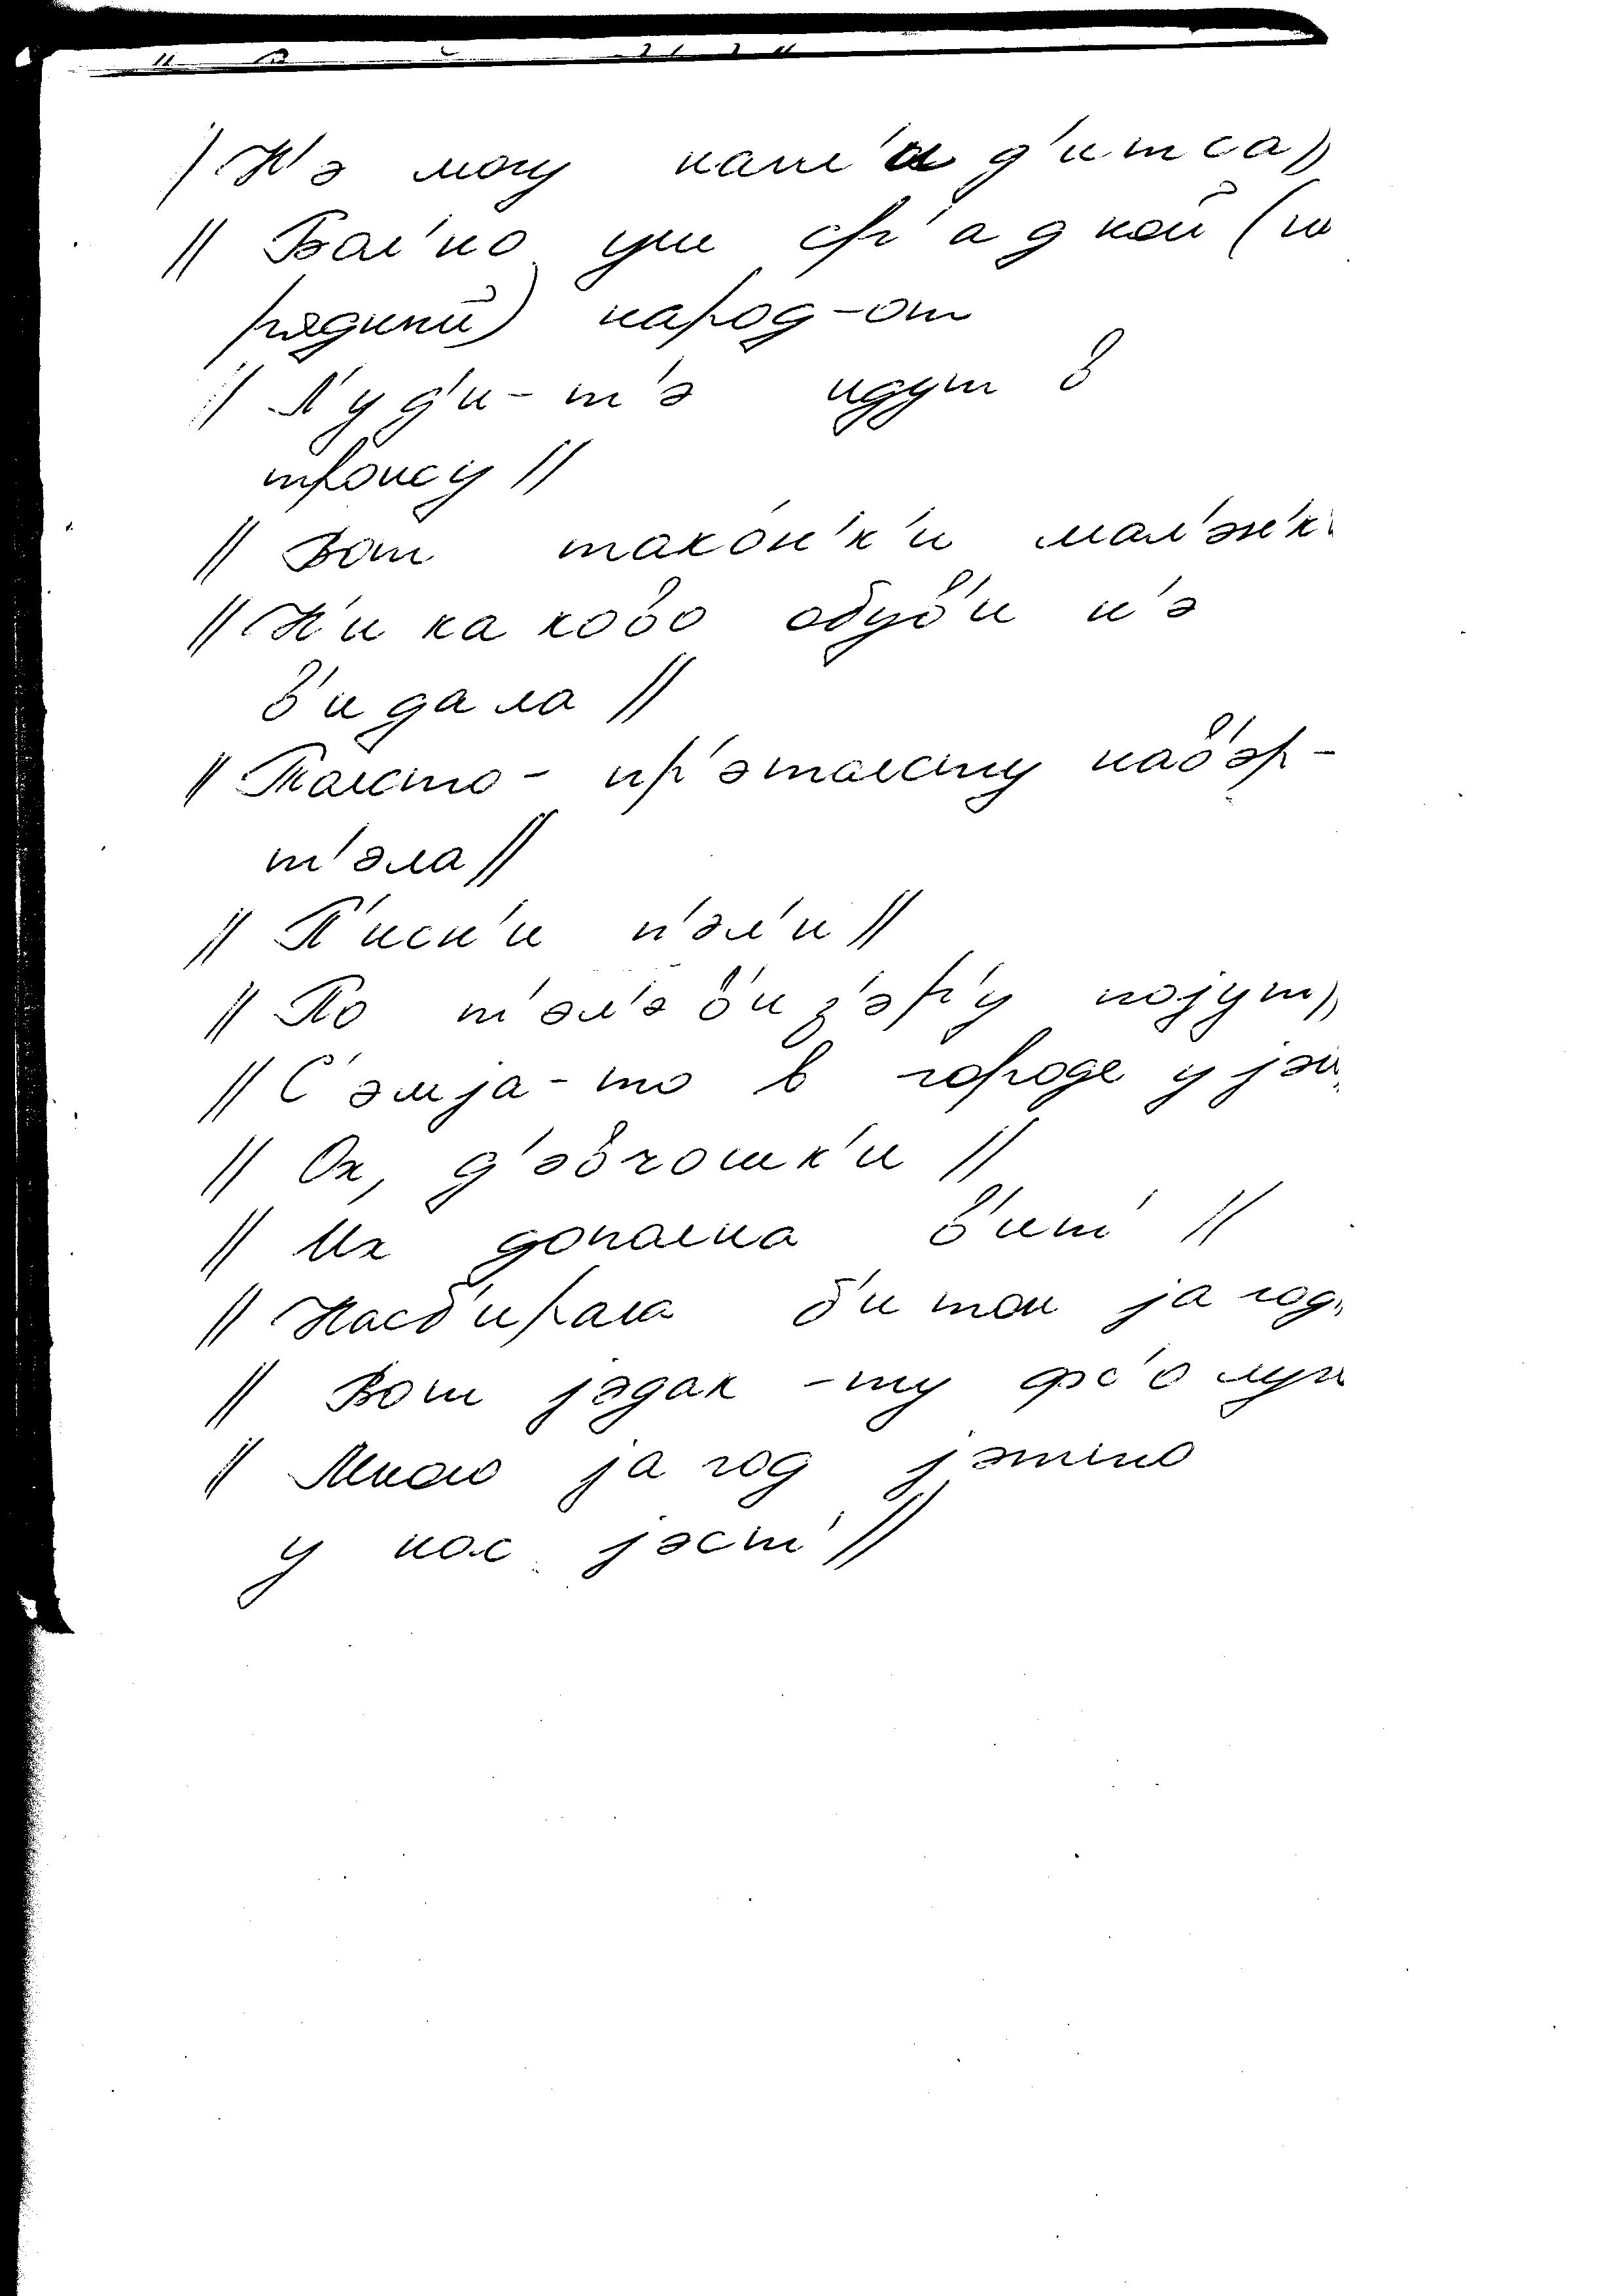 // Н'э могу нагл'ад'итса //
// Бол'но уш ср'адной (на
рядный) народ-от
// Л'уд'и-т'э идут в
троицу //
// Вот такон'к'и мал'эн'к'
// Н'и каково обув'и н'э
в'идала //
// Толсто-пр'этолсту нав'эр-
т'эла //
// П'исн'и п'эл'и //
// По т'эл'эв'из'эр'у појут //
// С'эмја-то в городе у јэй
// Ох, д'эвчошк'и //
// Их дополна в'ит' //
// Насб'ирала б'итон јагод
// Вот јэдак-ту фс'о
// Много јагод
у нас јэст' //